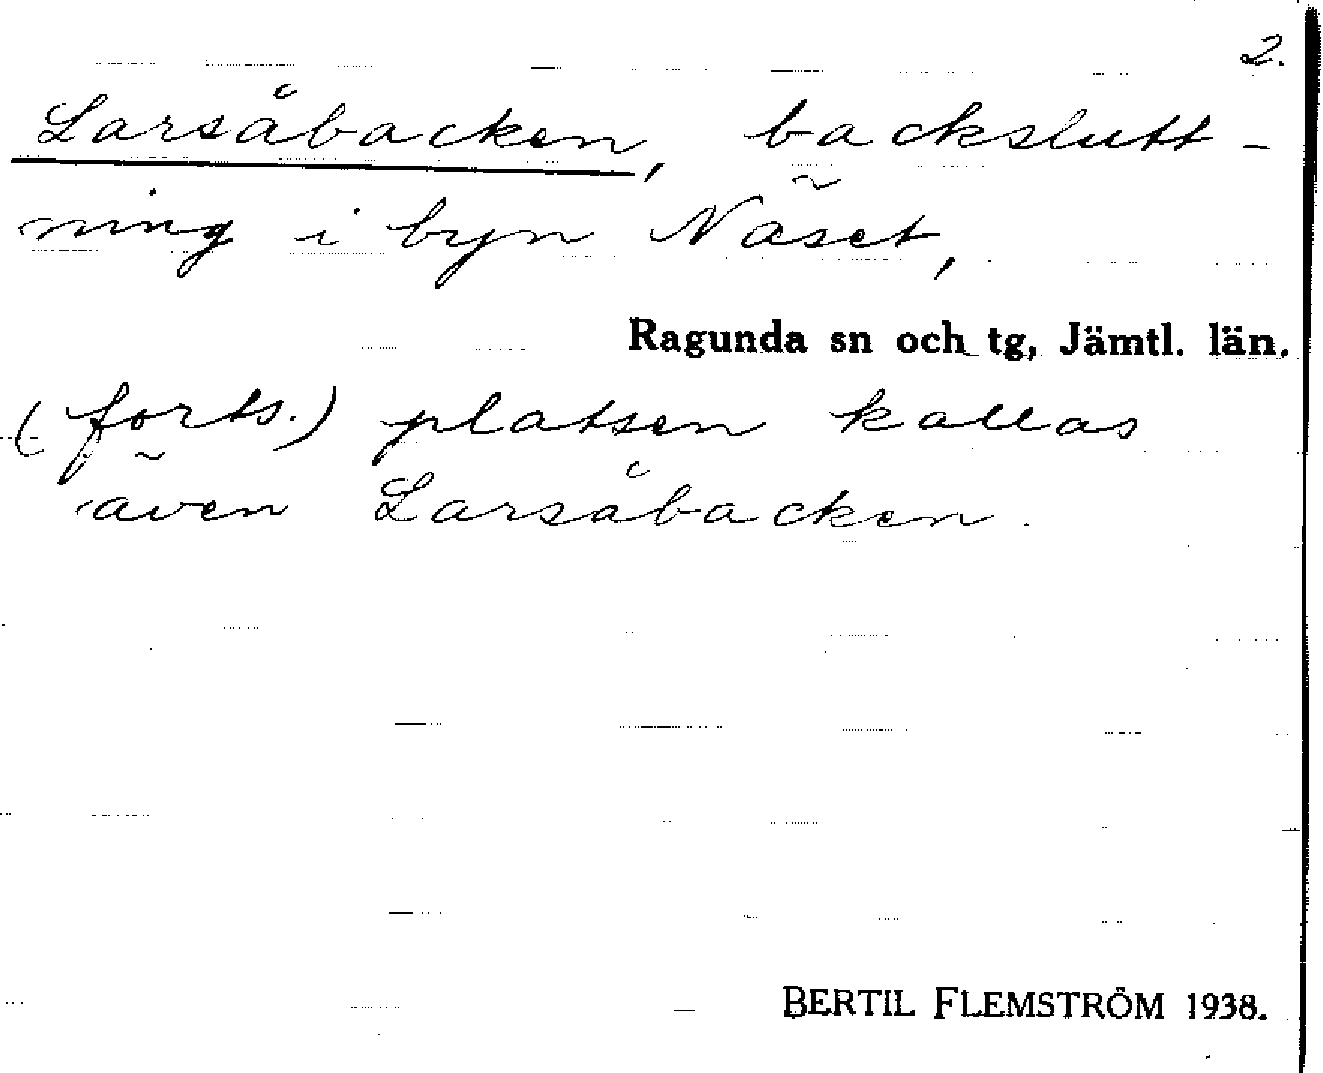 2.
Larsåbacken, backslutt-
ning i byn Näset,
Ragunda sn och tg, Jämtl. län.
(forts.) platsen kallas
även Larsåbacken.
BERTIL FLEMSTRÖM 1938.